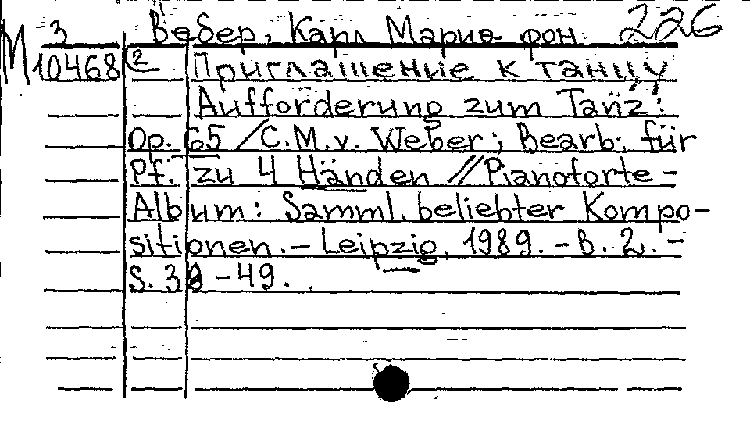 М 3 Вебер, Карл Мария фон 226
10468 2 Приглашение к танцу
Aufforderung zum Tanz :
Op. 65 / C.M.v. Weber ; Bearb. für
Pf. zu 4 Händen // Pianoforte-
Album : Samml. beliebter Kompo-
sitionen. - Leipzig, 1989. - B. 2. -
S. -49.